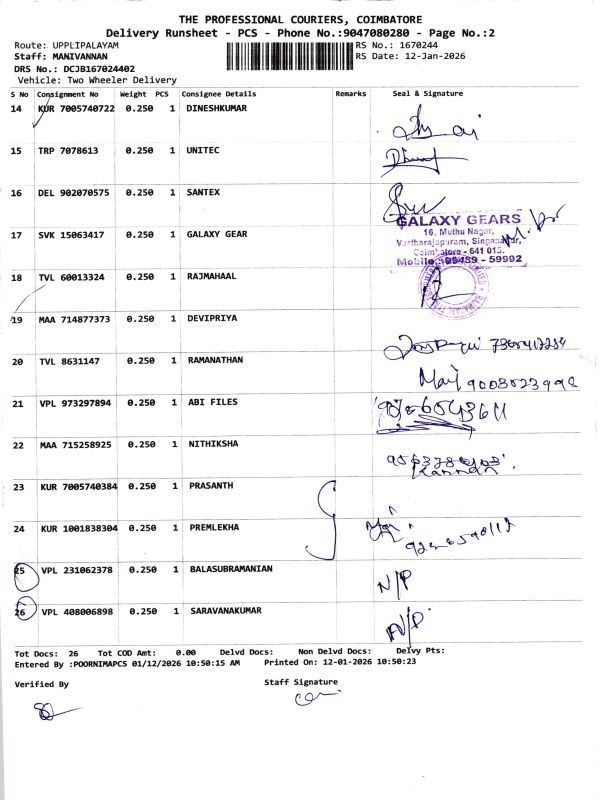 THE PROFESSIONAL COURIERS, COIMBATORE
Delivery Runsheet - PCS - Phone No.:9047080280 - Page No.:2
Route: UPPLIPALAYAM RS No.: 1670244
Staff: MANIVANNAN RS Date: 12-Jan-2026
DRS No.: DCJB167024402
Vehicle: Two Wheeler Delivery
S No Consignment No Weight PCS Consignee Details Remarks Seal & Signature
14 KUR 7005740722 0.250 1 DINESHKUMAR
15 TRP 7078613 0.250 1 UNITEC
16 DEL 902070575 0.250 1 SANTEX
GALAXY GEARS
16, Muthu Nagar,
17 SVK 15063417 0.250 1 GALAXY GEAR
Vartharajapuram, Singanallur,
Coimbatore - 641 015.
Mobile: 99439 - 59992
18 TVL 60013324 0.250 1 RAJMAHAAL
19 MAA 714877373 0.250 1 DEVIPRIYA
20 TVL 8631147 0.250 1 RAMANATHAN
21 VPL 973297894 0.250 1 ABI FILES
22 MAA 715258925 0.250 1 NITHIKSHA
23 KUR 7005740384 0.250 1 PRASANTH
24 KUR 1001838304 0.250 1 PREMLEKHA
25 VPL 231062378 0.250 1 BALASUBRAMANIAN N/P
26 VPL 408006898 0.250 1 SARAVANAKUMAR N/P
Tot Docs: 26 Tot COD Amt: 0.00 Delvd Docs: Non Delvd Docs: Delvy Pts:
Entered By :POORNIMAPCS 01/12/2026 10:50:15 AM Printed On: 12-01-2026 10:50:23
Verified By Staff Signature